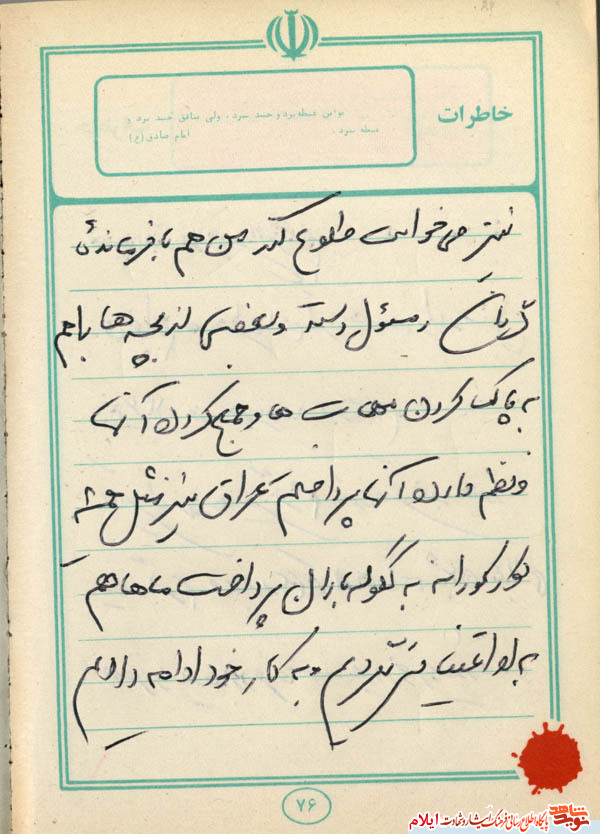 خاطرات
مؤمن غبطه میبرد و حسد نمیبرد ، ولی منافق حسد میبرد و
غبطه نمیبرد .
امام صادق (ع)
نیز می‌خواست طلوع کند من هم با فرمانده
گردان و مسئول دسته و بعضی از بچه ها باهم
به پاک کردن مهمات ها و جمع کردن آنها
و نظم دادن آنها پرداختیم عراق نیز مثل همیشه
کورکورانه به گلوله باران پرداخت ماها هم
به او اعتنا نمی‌کردیم و به کار خود ادامه دادیم
۷۶
نوید شاهد
پایگاه اطلاع رسانی فرهنگ ایثار و شهادت ایلام